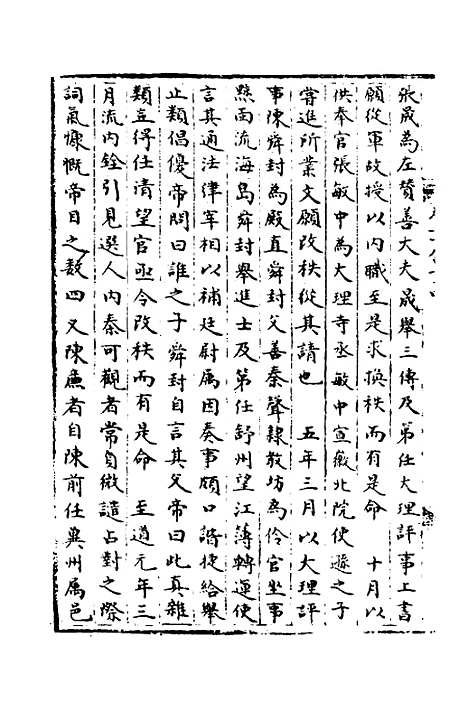 張晟為左贊善大夫晟舉三傳及第任大理評事上書
願從軍故授以内職至是求換秩而有是命　十月以
供奉官張敏中為大理寺丞敏中宣徽北院使遜之子
嘗進所業文願改秩從其請也　五年三月以大理評
事陳舜封為殿直舜封父善秦聲隸教坊為伶官坐事
黥面流海島舜封舉進士及第任舒州望江簿轉運使
言其通法律宰相以補廷尉属因奏事頗口諧捷給舉
止類倡優帝問曰誰之子舜封自言其父帝曰此真雜
類豈得任清望官亟令改秩而有是命　至道元年三
月流内銓引見選人内秦可觀者常負微譴占對之際
詞氣慷慨帝目之數四又陳廉者自陳前任冀州属邑